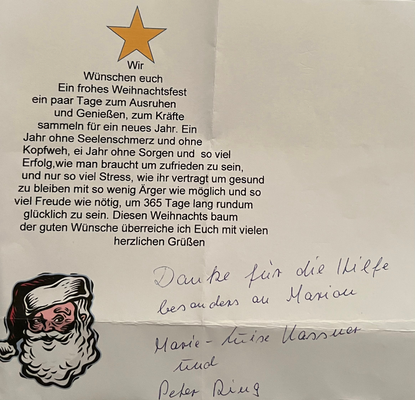 Wir
Wünschen euch
Ein frohes Weihnachtsfest
ein paar Tage zum Ausruhen
und Genießen, zum Kräfte
sammeln für ein neues Jahr. Ein
Jahr ohne Seelenschmerz und ohne
Kopfweh, ei Jahr ohne Sorgen und so viel
Erfolg,wie man braucht um zufrieden zu sein,
und nur so viel Stress, wie ihr vertragt um gesund
zu bleiben mit so wenig Ärger wie möglich und so
viel Freude wie nötig, um 365 Tage lang rundum
glücklich zu sein. Diesen Weihnachts baum
der guten Wünsche überreiche ich Euch mit vielen
herzlichen Grüßen
Danke für die Hilfe
besonders an Marion
Marie-Luise Kassner
und
Peter Ring